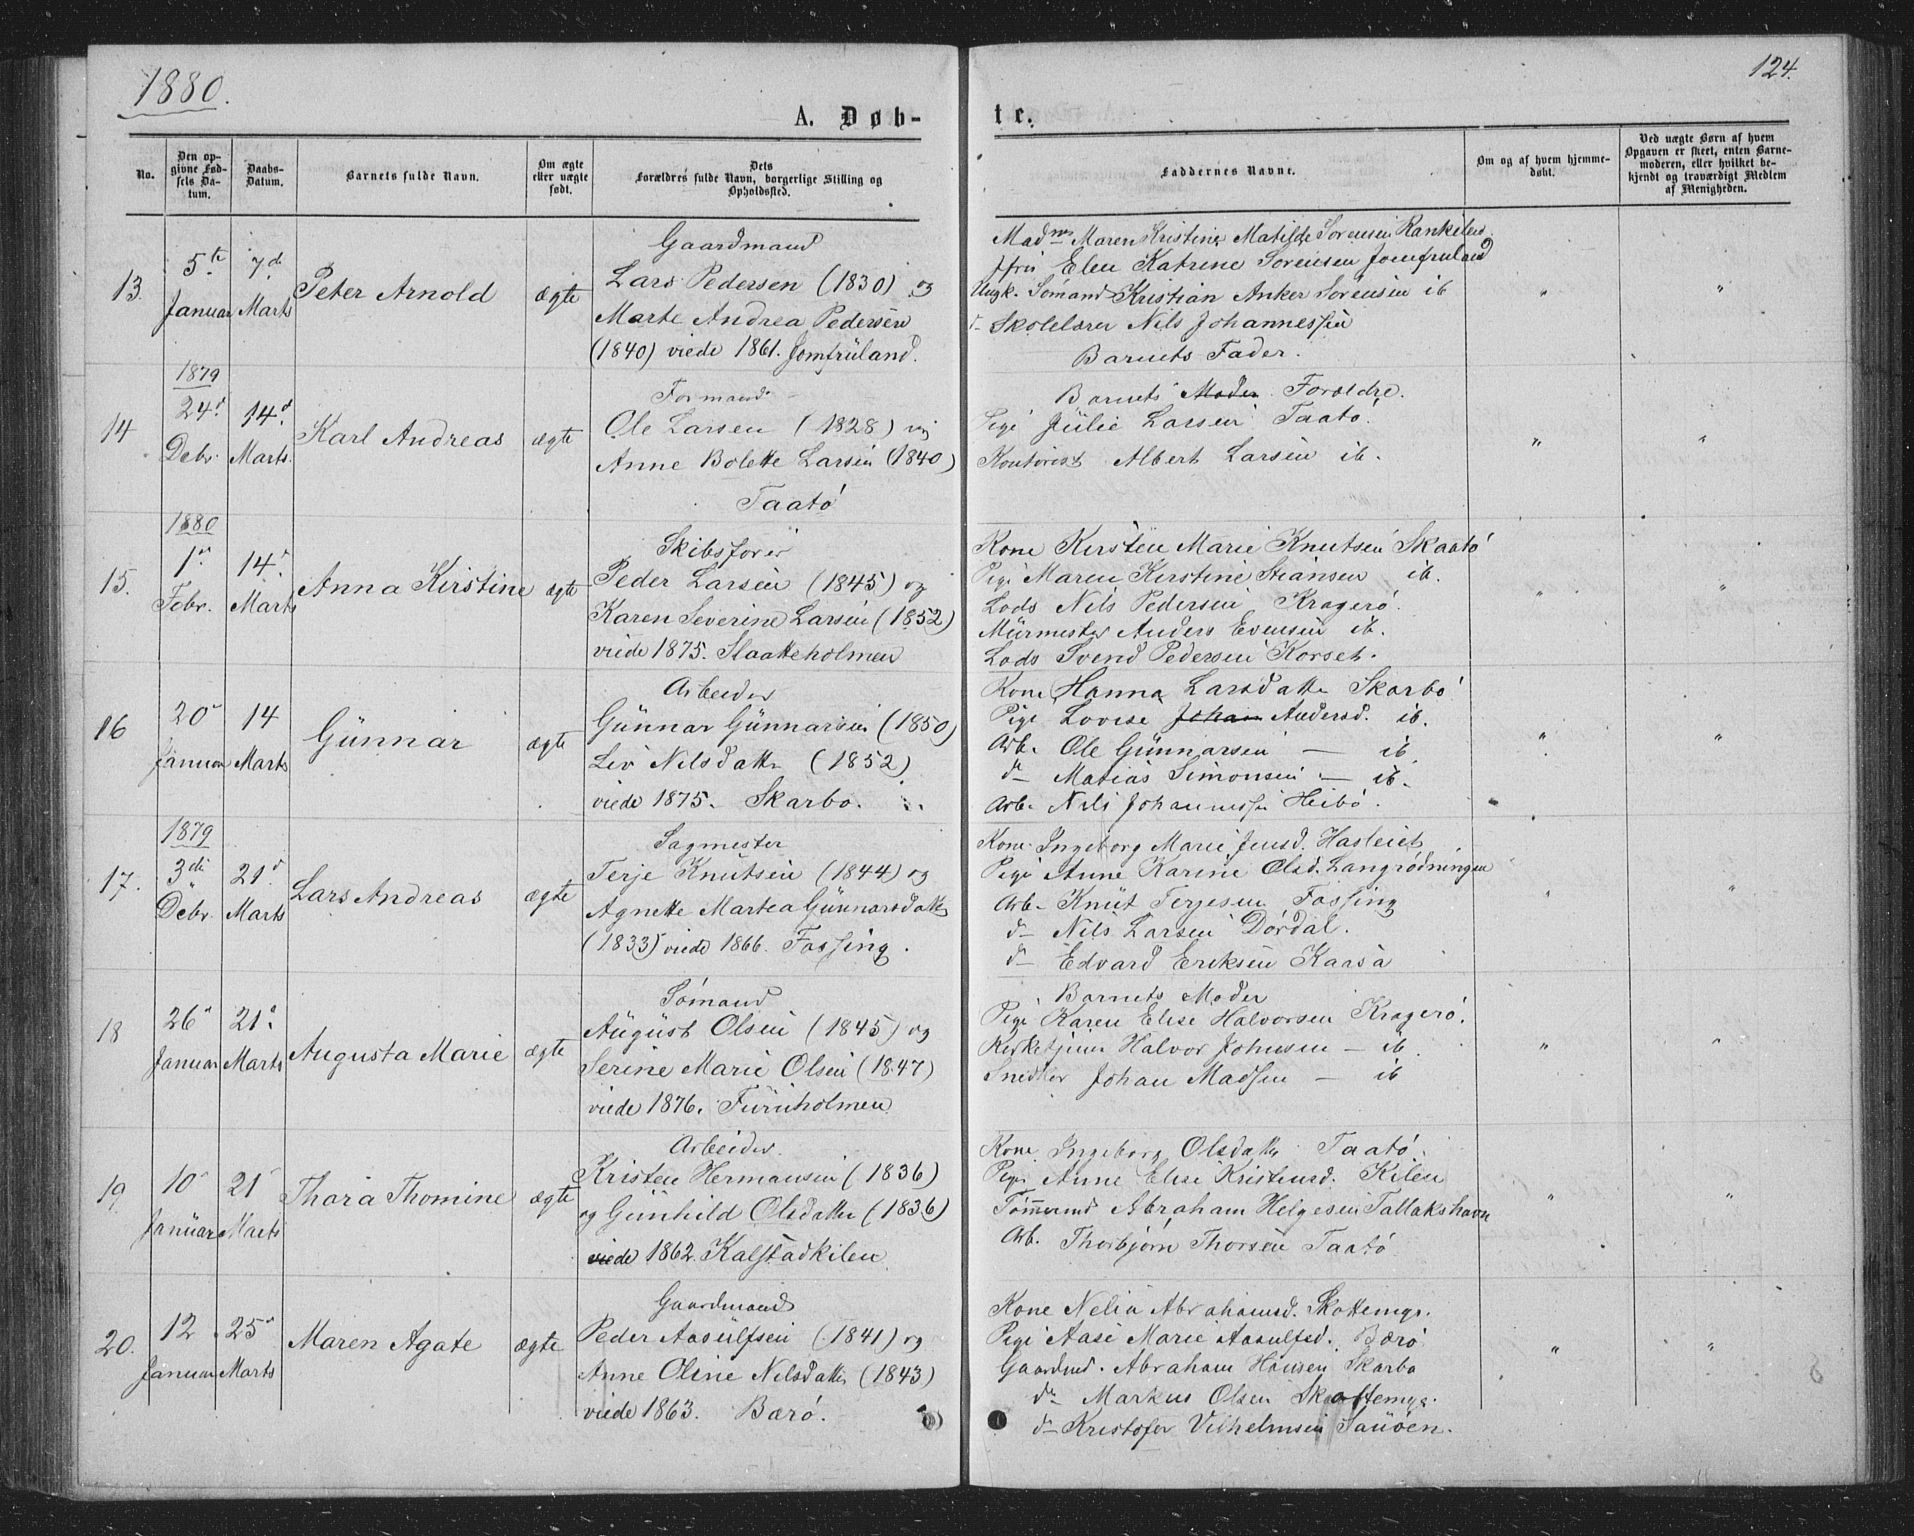 1880.
124.
A. Døb-
te.
No.
Den op-
givne Fød-
sels Da-
tum.
Daabs-
Datum.
Barnets fulde Navn.
Om ægte
eller uægte
født.
Dets
Forældres fulde Navn, borgerlige Stilling og
Opholdssted.
Faddernes Navne.
Om og af hvem hjemme-
døbt.
Ved uægte Børn af hvem
Opgaven er skeet, enten Barne-
moderen, eller hvilket be-
kjendt og troværdigt Medlem
af Menigheden.
13.
5te
Januar
7d
Marts
Peter Arnold
ægte
Gaardmand
Lars Pedersen (1830) og
Marte Andrea Pedersen
(1840) viede 1861. Jomfruland.
Maren Kristine Matilde Sorensen
Elen Katrine Sorensen Jomfruland
Ungk. Sömand Kristian Anker Sorensen ib
d- Skolelærer Nils Johannessen
Barnets Fader.
"
"
14
1879
24d
Debr.
14d
Marts.
Karl Andreas
ægte
Formand
Ole Larsen (1828) og
Anne Bolette Larsen (1840)
Taatö
Barnets Moder Forældre.
Pige Julie Larsen Taatö.
Kontorist Albert Larsen ib.
"
"
15.
1880
1d
Febr.
14d
Marts
Anna Kirstine
ægte
Skibsförer
Peder Larsen (1845) og
Karen Severine Larsen (1852)
viede 1875. Slaatteholmen
Kone Kirsten Marie Knutsen Skaatö
Pige Maren Kirstine Stiansen ib.
Lods Nils Pedersen Kragerö.
Murmester Anders Evensen ib.
Lods Svend Pedersen Korset.
"
"
16
20d
Januar
14
Marts
Gunnar
ægte
Arbeider
Gunnar Gunnarsen (1850)
Liv Nilsdatter (1852)
viede 1875. Skarbo.
Kone Hanna Larsdatter Skarbo
Pige Lovise Johan Andersd. ib.
Arb. Ole Gunnarsen — ib
d- Matias Simonsen — ib.
Arb. Nils Johannessen Heibö.
"
"
17.
1879
3die
Debr.
21d
Marts
Lars Andreas
ægte
Sagmester
Terje Knutsen (1844) og
Agnette Martea Gunnarsdatter
(1833) viede 1866. Fossing.
Kone Ingeborg Marie Jensd. Hasleiet
Pige Anne Karine Olsd. Langrödningen
Arb. Knut Terjesen Fossing
d- Nils Larsen Dördal.
d- Edvard Eriksen Kaasa
"
"
18
26d
Januar
21d
Marts
Augusta Marie
ægte
Sömand
August Olsen (1845) og
Serine Marie Olsen (1847)
viede 1876. Furuholmen
Barnets Moder
Pige Karen Elise Halvorsen Kragerö.
Kirketjener Halvor Johnsen — ib.
Snedker Johan Madsen — ib
"
"
19.
10d
Januar
21
Marts
Thora Thomine
ægte
Arbeider
Kristen Hermansen (1836)
og Gunhild Olsdatter (1836)
viede 1862. Kalstadkilen
Kone Ingeborg Olsdatter Taatö.
Pige Anne Elise Kristensd. Kilen
Tömmermd Abraham Helgesen Tallakshavn
Arb. Thorbjörn Thorsen Taatö
"
"
20.
12
Januar
25d
Marts
Maren Agate
ægte
Gaardmand
Peder Aasulfsen (1841) og
Anne Oline Nilsdatter (1843)
viede 1863. Bærö.
Kone Nelia Abrahamsd. Skottemyr.
Pige Aase Marie Aasulfsd. Bærö
Gaardmd. Abraham Hansen Skarbo
d- Markus Olsen Skottemyr.
d- Kristofer Vilhelmsen Sauöen.
"
"